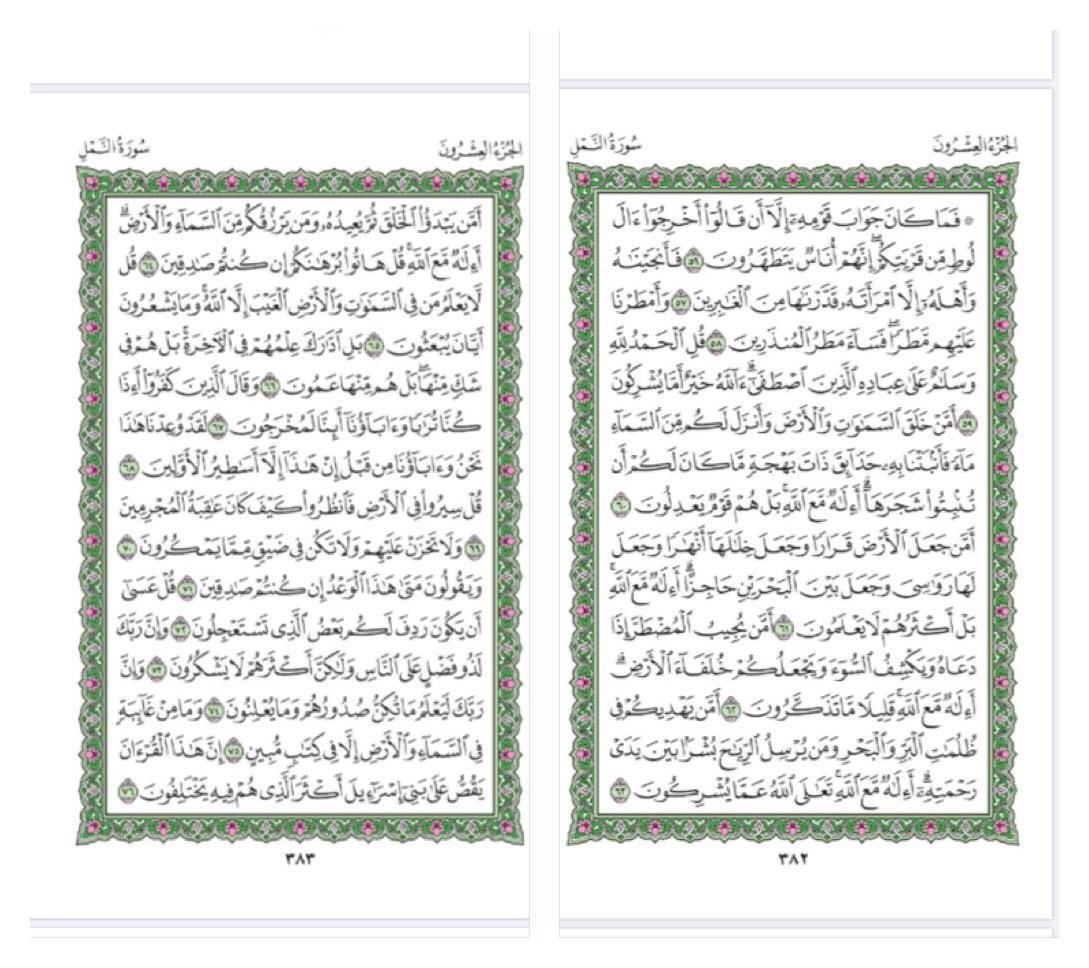 الجُزْءُ العِشْرُونَ
سُورَةُ النَّمْلِ
۞ فَمَا كَانَ جَوَابَ قَوْمِهِۦٓ إِلَّآ أَن قَالُوٓا۟ أَخْرِجُوٓا۟ ءَالَ
لُوطٍ مِّن قَرْيَتِكُمْ ۖ إِنَّهُمْ أُنَاسٌ يَتَطَهَّرُونَ ٥٦ فَأَنجَيْنَٰهُ
وَأَهْلَهُۥٓ إِلَّا ٱمْرَأَتَهُۥ قَدَّرْنَٰهَا مِنَ ٱلْغَٰبِرِينَ ٥٧ وَأَمْطَرْنَا
عَلَيْهِم مَّطَرًا ۖ فَسَآءَ مَطَرُ ٱلْمُنذَرِينَ ٥٨ قُلِ ٱلْحَمْدُ لِلَّهِ
وَسَلَٰمٌ عَلَىٰ عِبَادِهِ ٱلَّذِينَ ٱصْطَفَىٰٓ ۗ ءَآللَّهُ خَيْرٌ أَمَّا يُشْرِكُونَ
٥٩ أَمَّنْ خَلَقَ ٱلسَّمَٰوَٰتِ وَٱلْأَرْضَ وَأَنزَلَ لَكُم مِّنَ ٱلسَّمَآءِ
مَآءً فَأَنۢبَتْنَا بِهِۦ حَدَآئِقَ ذَاتَ بَهْجَةٍ مَّا كَانَ لَكُمْ أَن
تُنۢبِتُوا۟ شَجَرَهَآ ۗ أَءِلَٰهٌ مَّعَ ٱللَّهِ ۚ بَلْ هُمْ قَوْمٌ يَعْدِلُونَ ٦٠
أَمَّن جَعَلَ ٱلْأَرْضَ قَرَارًا وَجَعَلَ خِلَٰلَهَآ أَنْهَٰرًا وَجَعَلَ
لَهَا رَوَٰسِىَ وَجَعَلَ بَيْنَ ٱلْبَحْرَيْنِ حَاجِزًا ۗ أَءِلَٰهٌ مَّعَ ٱللَّهِ ۚ
بَلْ أَكْثَرُهُمْ لَا يَعْلَمُونَ ٦١ أَمَّن يُجِيبُ ٱلْمُضْطَرَّ إِذَا
دَعَاهُ وَيَكْشِفُ ٱلسُّوٓءَ وَيَجْعَلُكُمْ خُلَفَآءَ ٱلْأَرْضِ ۗ
أَءِلَٰهٌ مَّعَ ٱللَّهِ ۚ قَلِيلًا مَّا تَذَكَّرُونَ ٦٢ أَمَّن يَهْدِيكُمْ فِى
ظُلُمَٰتِ ٱلْبَرِّ وَٱلْبَحْرِ وَمَن يُرْسِلُ ٱلرِّيَٰحَ بُشْرًۢا بَيْنَ يَدَىْ
رَحْمَتِهِۦٓ ۗ أَءِلَٰهٌ مَّعَ ٱللَّهِ ۚ تَعَٰلَى ٱللَّهُ عَمَّا يُشْرِكُونَ ٦٣
٣٨٢
الجُزْءُ العِشْرُونَ
سُورَةُ النَّمْلِ
أَمَّن يَبْدَؤُا۟ ٱلْخَلْقَ ثُمَّ يُعِيدُهُۥ وَمَن يَرْزُقُكُم مِّنَ ٱلسَّمَآءِ وَٱلْأَرْضِ ۗ
أَءِلَٰهٌ مَّعَ ٱللَّهِ ۚ قُلْ هَاتُوا۟ بُرْهَٰنَكُمْ إِن كُنتُمْ صَٰدِقِينَ ٦٤ قُل
لَّا يَعْلَمُ مَن فِى ٱلسَّمَٰوَٰتِ وَٱلْأَرْضِ ٱلْغَيْبَ إِلَّا ٱللَّهُ ۚ وَمَا يَشْعُرُونَ
أَيَّانَ يُبْعَثُونَ ٦٥ بَلِ ٱدَّٰرَكَ عِلْمُهُمْ فِى ٱلْءَاخِرَةِ ۚ بَلْ هُمْ فِى
شَكٍّ مِّنْهَا ۖ بَلْ هُم مِّنْهَا عَمُونَ ٦٦ وَقَالَ ٱلَّذِينَ كَفَرُوٓا۟ أَءِذَا
كُنَّا تُرَٰبًا وَءَابَآؤُنَآ أَئِنَّا لَمُخْرَجُونَ ٦٧ لَقَدْ وُعِدْنَا هَٰذَا
نَحْنُ وَءَابَآؤُنَا مِن قَبْلُ إِنْ هَٰذَآ إِلَّآ أَسَٰطِيرُ ٱلْأَوَّلِينَ ٦٨
قُلْ سِيرُوا۟ فِى ٱلْأَرْضِ فَٱنظُرُوا۟ كَيْفَ كَانَ عَٰقِبَةُ ٱلْمُجْرِمِينَ
٦٩ وَلَا تَحْزَنْ عَلَيْهِمْ وَلَا تَكُن فِى ضَيْقٍ مِّمَّا يَمْكُرُونَ ٧٠
وَيَقُولُونَ مَتَىٰ هَٰذَا ٱلْوَعْدُ إِن كُنتُمْ صَٰدِقِينَ ٧١ قُلْ عَسَىٰٓ
أَن يَكُونَ رَدِفَ لَكُم بَعْضُ ٱلَّذِى تَسْتَعْجِلُونَ ٧٢ وَإِنَّ رَبَّكَ
لَذُو فَضْلٍ عَلَى ٱلنَّاسِ وَلَٰكِنَّ أَكْثَرَهُمْ لَا يَشْكُرُونَ ٧٣ وَإِنَّ
رَبَّكَ لَيَعْلَمُ مَا تُكِنُّ صُدُورُهُمْ وَمَا يُعْلِنُونَ ٧٤ وَمَا مِنْ غَآئِبَةٍ
فِى ٱلسَّمَآءِ وَٱلْأَرْضِ إِلَّا فِى كِتَٰبٍ مُّبِينٍ ٧٥ إِنَّ هَٰذَا ٱلْقُرْءَانَ
يَقُصُّ عَلَىٰ بَنِىٓ إِسْرَٰٓءِيلَ أَكْثَرَ ٱلَّذِى هُمْ فِيهِ يَخْتَلِفُونَ ٧٦
٣٨٣